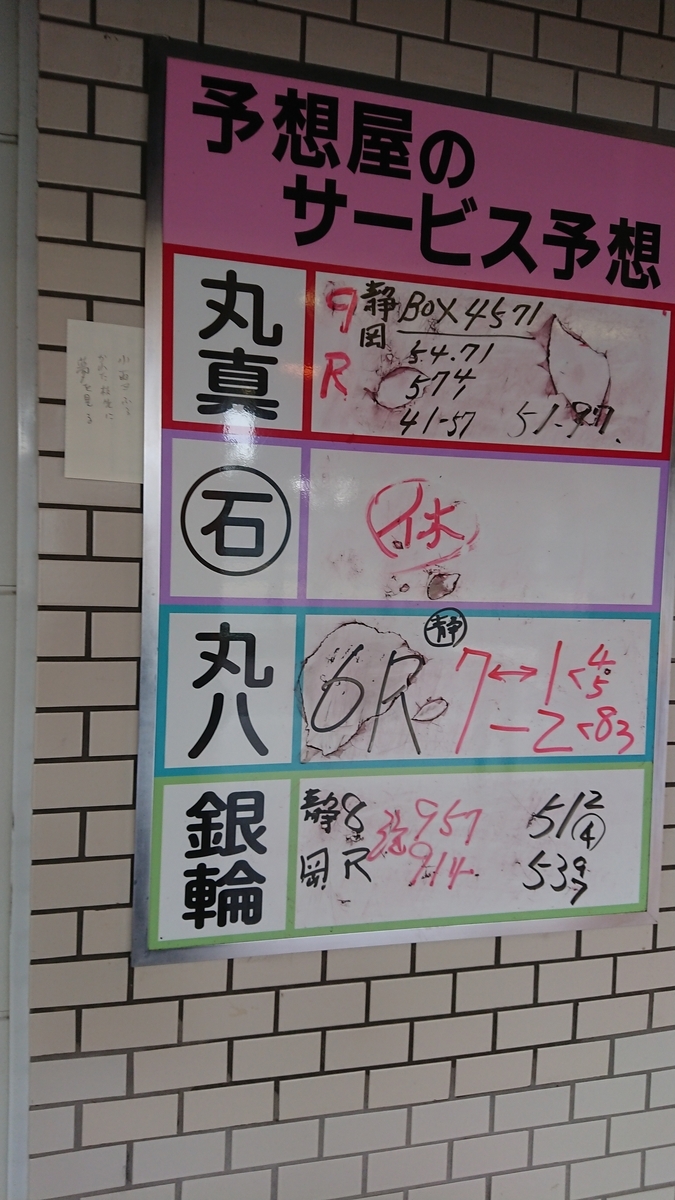 予想屋の
サービス予想
丸真
9R
静岡
BOX4571
54.71
574
41-57
51-97.
石
休
丸八
静
6R
7↔1<4.5
7-2<83
銀輪
静岡
8R
957
914.
512④
5397